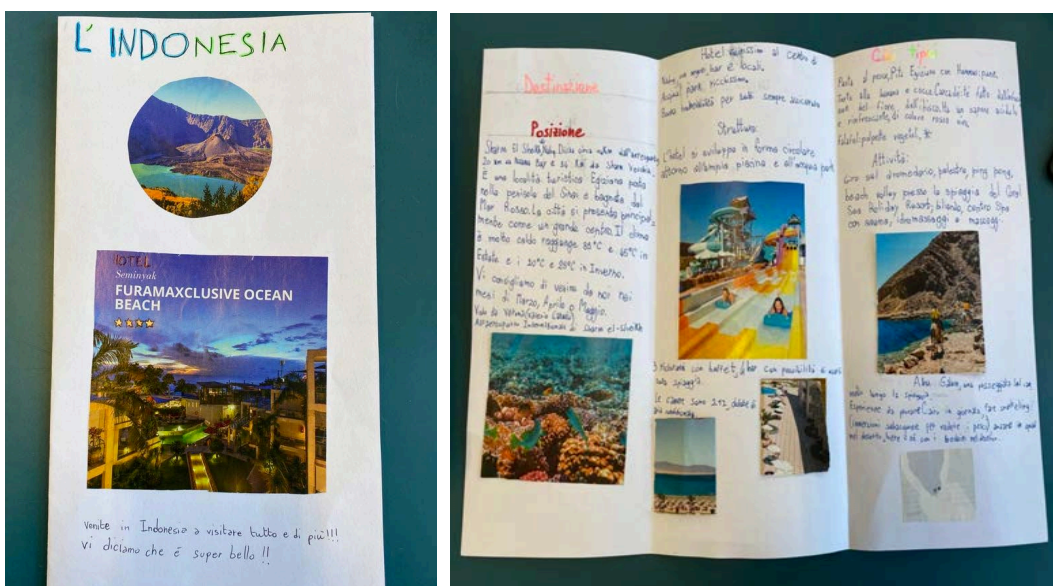 L'INDONESIA
HOTEL
Seminyak
FURAMAXCLUSIVE OCEAN
BEACH
Venite in Indonesia a visitare tutto e di più!!!
Vi diciamo che é super bello !!
Destinazione
Posizione
Sharm El Sheikh, Naby, Dista circa dall'aeroporto
20 km da Naama Bay e 36 Km da Sharm Vecchia.
È una località turistica Egiziana posta
nella penisola del Sinai e bagnata dal
Mar Rosso. La città si presenta principal
mente come un grande centro. Il clima
è molto caldo raggiunge 35°C e 45°C in
Estate e i 20°C e 25°C in Inverno.
Vi consigliamo di venire da noi nei
mesi di Marzo, Aprile o Maggio.
Volo da Verona
Aeroporto Internazionale di Sharm el-Sheikh
Hotel: al centro di
bar e locali.
Acqua park ricchissimo.
Struttura:
L'hotel si sviluppa in forma circolare
attorno all'ampia piscina e all'acqua park
3 ristoranti con buffet, bar con possibilità
sulla spiaggia.
Le camere sono 342, dotate di
Cibi tipici
Pasta al pesce, Pita Egiziana con Hummus: pane,
Torta alla banana e cocco, Carcadè: tè fatto dall'infu
sione del fiore, dall'ibisco ha un sapore acidulo
e rinfrescante, di colore rosso vivo,
Falafel: polpette vegetali,
Attività:
Giro sul dromedario, palestra, ping pong,
beach volley presso la spiaggia del Coral
Sea Holiday Resort, biliardo, centro Spa
con sauna, idromassaggi e massaggi.
Abu Galum, una passeggiata sul cam
mello lungo la spiaggia.
Esperienze da in giornata, fare snorkeling:
(immersioni subacquee per vedere i pesci) andare in quad
nel deserto, bere il tè con i beduini nel deserto.